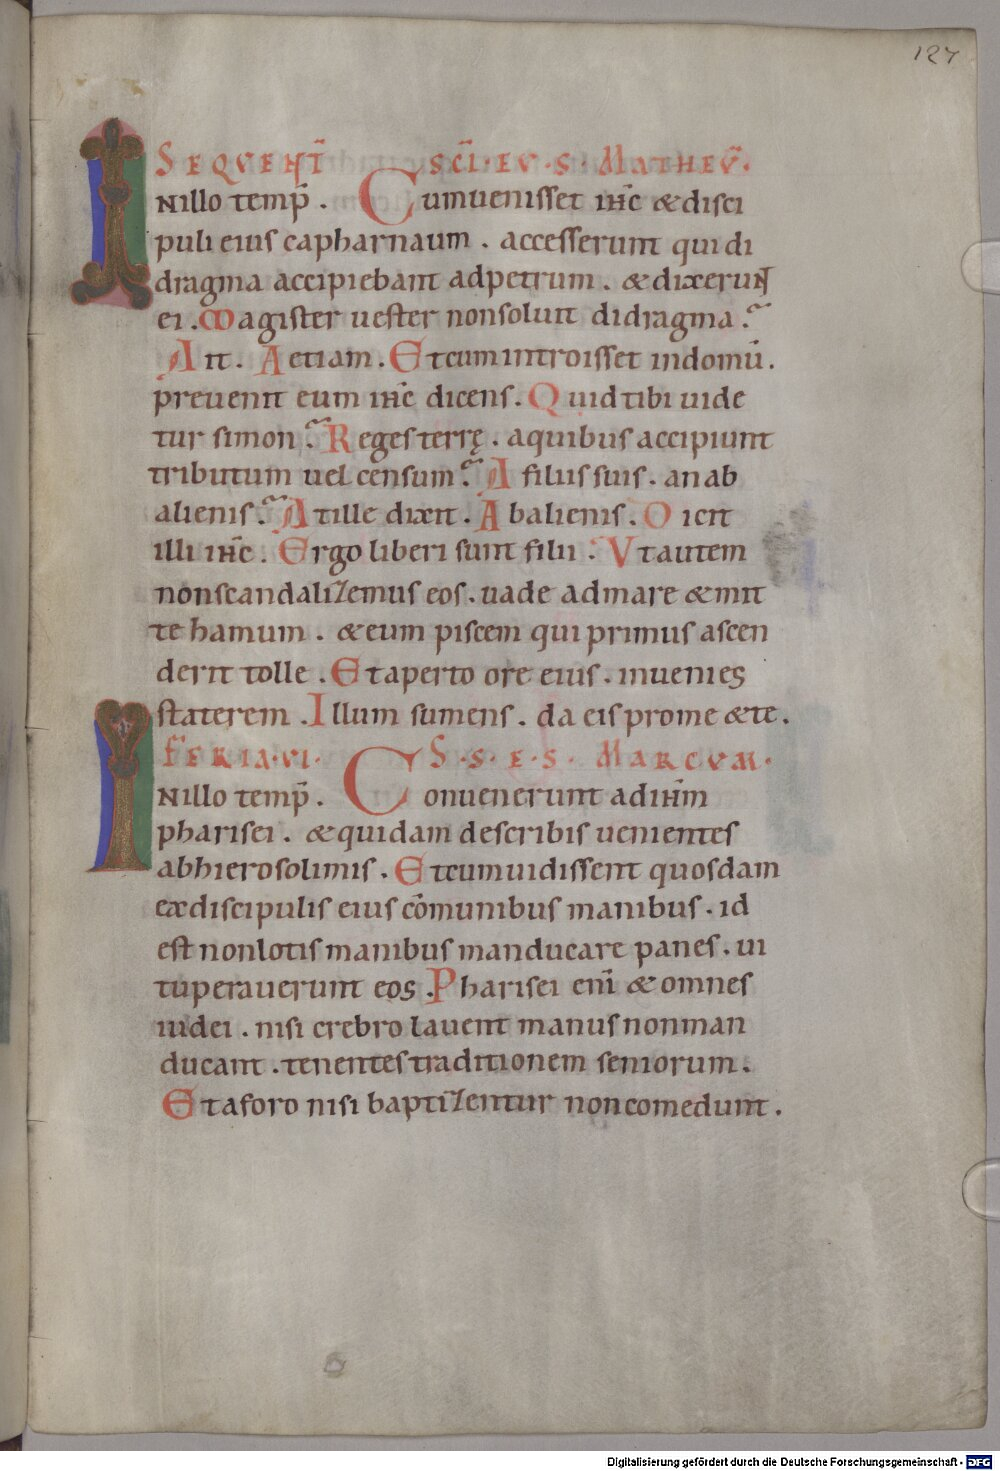 127
SEQUENT̄ SC̄I·EV·S·MATHEV̄.
INillo temp̄. Cumuenisset ihc̄ & disci
puli eius capharnaum. accesserunt qui di
dragma accipiebant adpetrum. & dixerunt
ei. Magister uester nonsoluit didragma?
Ait. Aetiam. Etcumintroisset indomū.
preuenit eum ihc̄ dicens. Quidtibiuide
tur simon? Regesterrę. aquibus accipiunt
tributum uel censum? A filiis suis. anab
alienis? Atille dixit. Abalienis. Dicit
illi ihc̄. Ergo liberi sunt filii. Utautem
nonscandalizemus eos. uade admare & mit
te hamum. & eum piscem qui primus ascen
derit tolle. Etaperto ore eius. inuenies
staterem. Illum sumens. da eis prome & te.
FERIA·VI· S·S·E·S· MARCVM·
INillo temp̄. Conuenerunt adihm̄
pharisei. & quidam describis uenientes
abhierosolimis. Etcumuidissent quosdam
exdiscipulis eius cōmunibus manibus. id
est nonlotis manibus manducare panes. ui
tuperauerunt eos. Pharisei enī & omnes
iudei. nisi crebro lauent manus nonman
ducant. tenentes traditionem seniorum.
Etaforo nisi baptizentur noncomedunt.
Digitalisierung gefördert durch die Deutsche Forschungsgemeinschaft - DFG